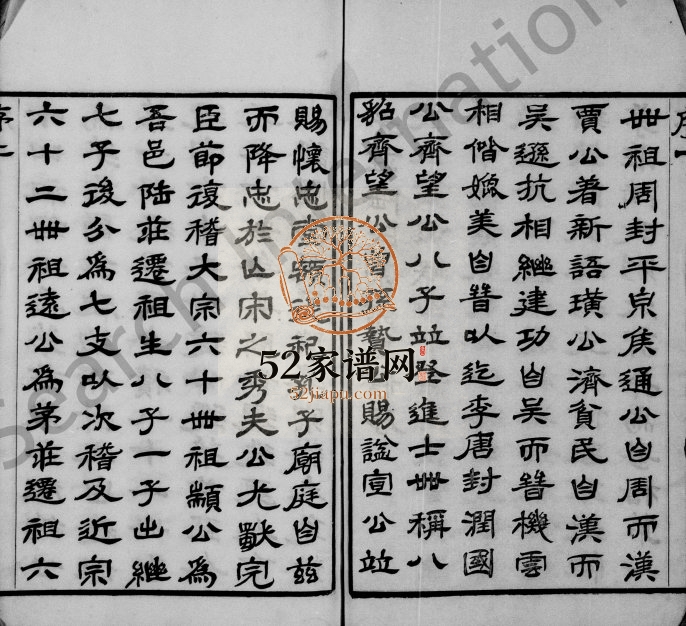 序一
世祖周封平原矦通公自周而漢
賈公著新語璜公濟貧民自漢而
吳遜抗相繼建功自吳而晉機雲
相偕媲美自晉以迄李唐封潤國
公齊望公八子竝登進士世稱八
貂齊望公曾孫贄公賜諡宣公竝
賜懷忠堂額從祀子廟庭自茲
而降忠於亾宋之秀夫公尤完
臣節復稽大宗六十世祖顓公為
吾邑陸莊遷祖生八子一子出繼
七子後分為七支以次稽及近宗
六十二世祖遠公為茅莊遷祖六
序二
52家谱网
52jiapu.com
Search International